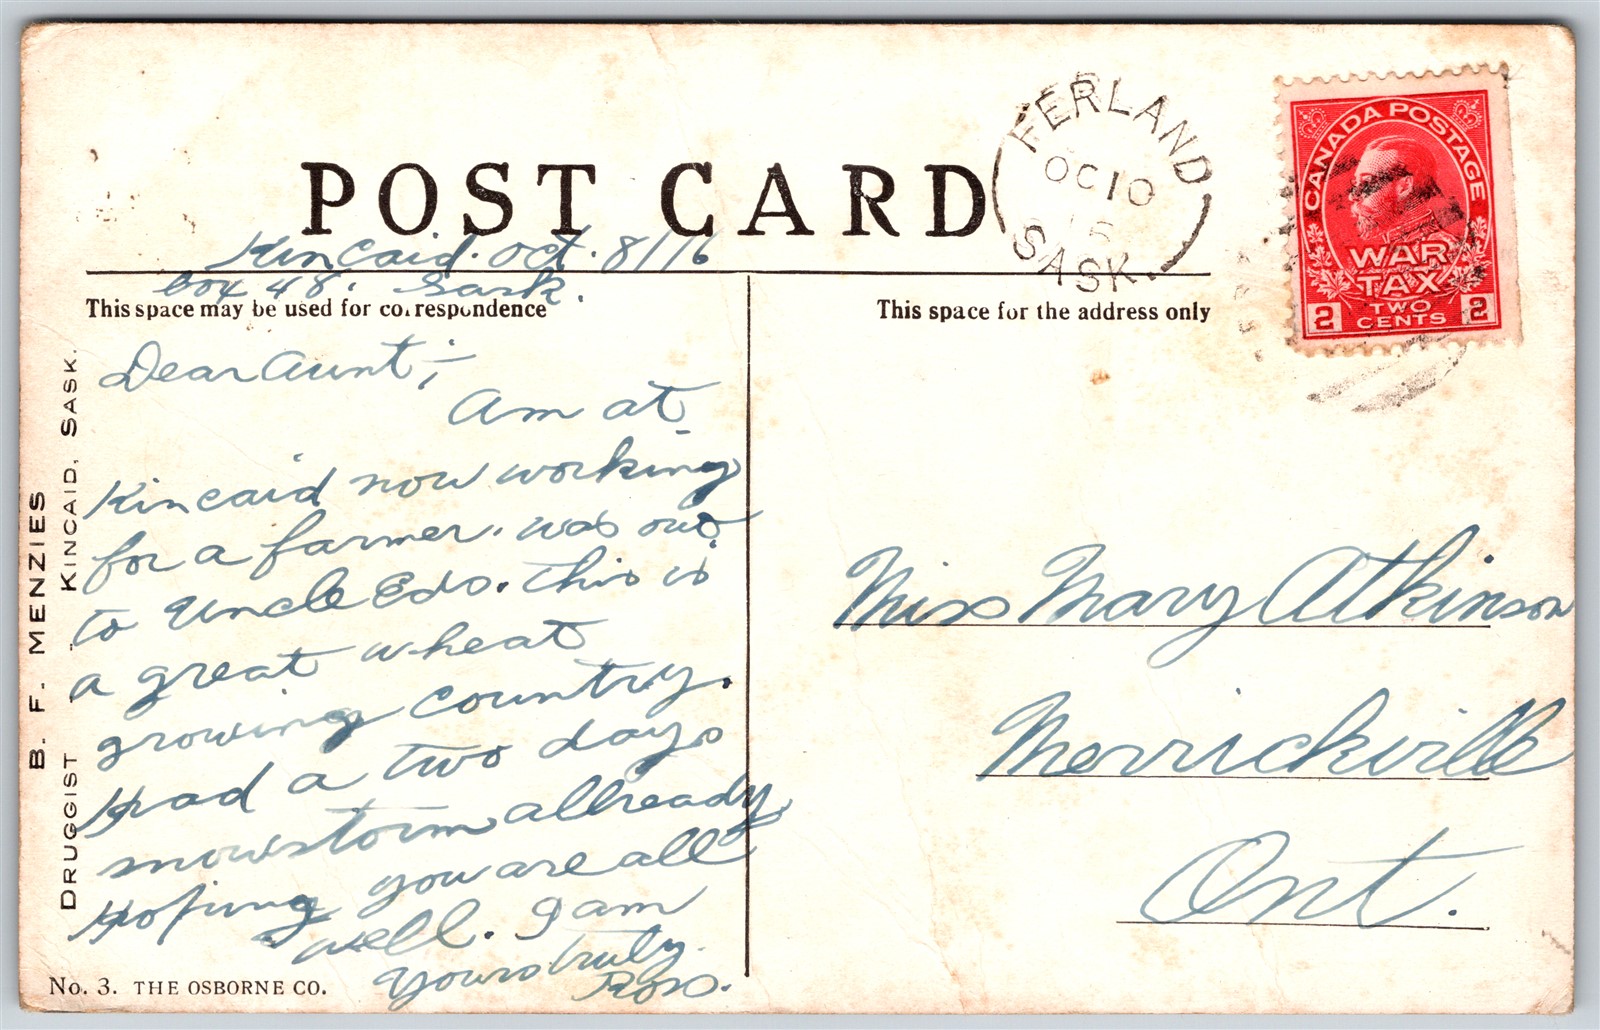 POST CARD
Kincaid. Oct. 8/16
box 48. Sask.
This space may be used for correspondence
Dear Aunt;—
Am at
Kincaid now working
for a farmer. was out
to Uncle Eds. This is
a great wheat
growing country.
Had a two days
snowstorm allready,
Hoping you are all
well. I am
Yours truly.
Ross.
This space for the address only
Miss Mary Atkinson
Merrickville
Ont.
FERLAND
OC 10
16
SASK.
CANADA POSTAGE
WAR
TAX
2 TWO 2
CENTS
B. F. MENZIES
DRUGGIST KINCAID, SASK.
No. 3. THE OSBORNE CO.